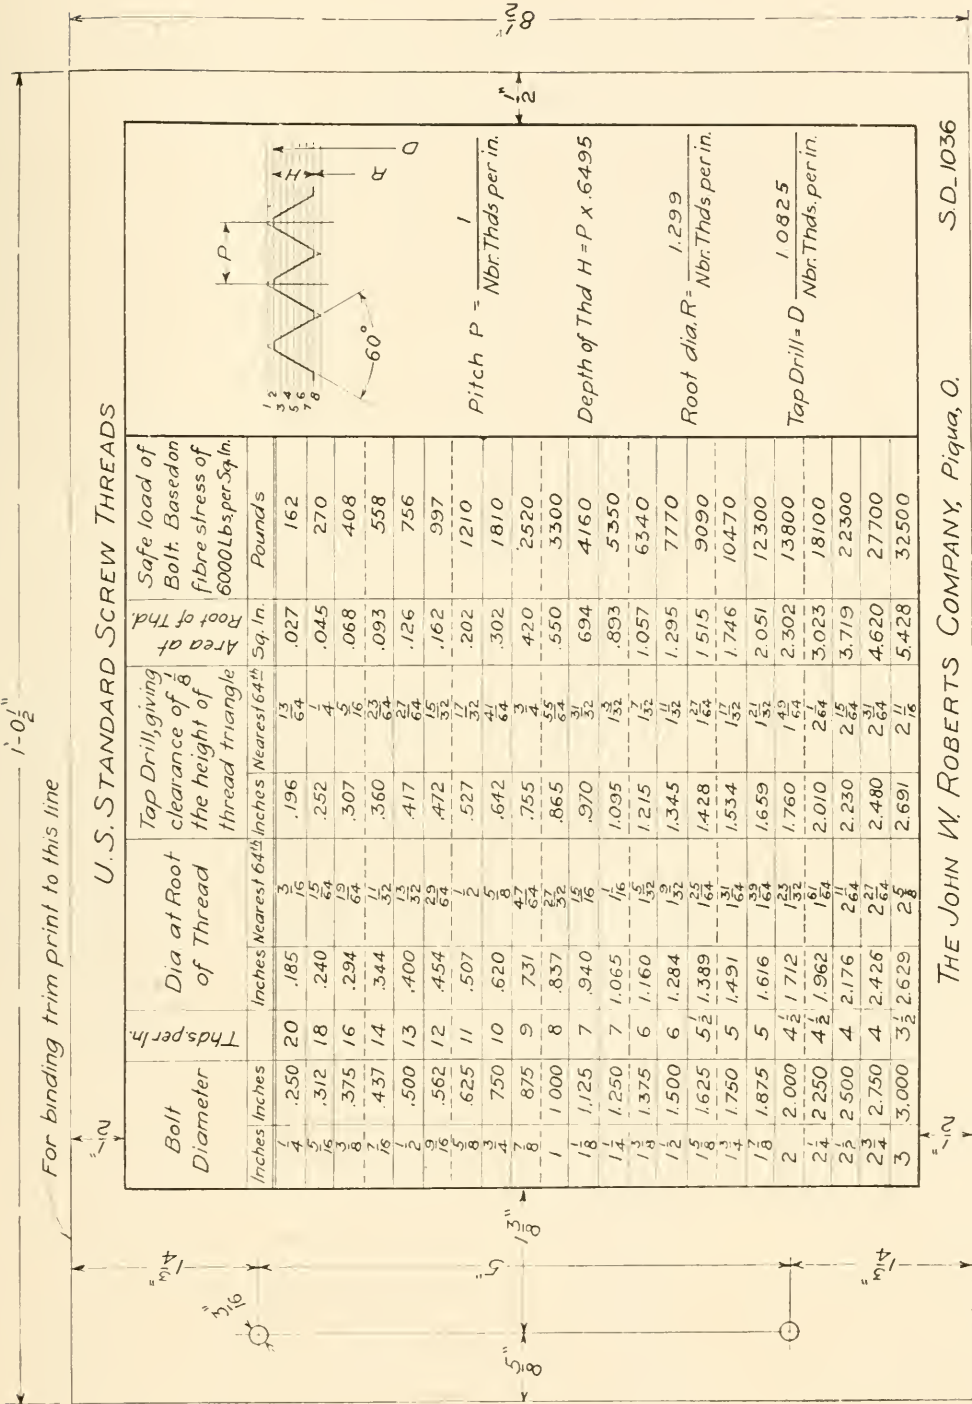 1'-0 1/2"
For binding trim print to this line
1/2"
8 1/2"
1 3/4"
3/16"
5"
1 3/4"
5/8"
1 3/8"
1/2"
1/2"
U.S. STANDARD SCREW THREADS
Bolt Diameter
Thds. per In.
Dia at Root of Thread
Tap Drill, giving clearance of 1/8 the height of thread triangle
Area at Root of Thd.
Safe load of Bolt. Based on fibre stress of 6000 Lbs. per Sq. In.
Inches Inches Inches Nearest 64th Inches Nearest 64th Sq. In. Pounds
1/4 .250 20 .185 3/16 .196 13/64 .027 162
5/16 .312 18 .240 15/64 .252 1/4 .045 270
3/8 .375 16 .294 19/64 .307 5/16 .068 408
7/16 .437 14 .344 11/32 .360 23/64 .093 558
1/2 .500 13 .400 13/32 .417 27/64 .126 756
9/16 .562 12 .454 29/64 .472 15/32 .162 997
5/8 .625 11 .507 1/2 .527 17/32 .202 1210
3/4 750 10 .620 5/8 .642 41/64 .302 1810
7/8 875 9 731 47/64 .755 3/4 .420 2520
1 1000 8 .837 27/32 .865 55/64 .550 3300
1 1/8 1.125 7 .940 15/16 .970 31/32 694 4160
1 1/4 1.250 7 1.065 1 1/16 1.095 1 3/32 .893 5350
1 3/8 1.375 6 1.160 1 5/32 1.215 1 7/32 1.057 6340
1 1/2 1.500 6 1.284 1 9/32 1.345 1 11/32 1.295 7770
1 5/8 1.625 5 1/2 1.389 1 25/64 1.428 1 27/64 1.515 9090
1 3/4 1.750 5 1.491 1 31/64 1.534 1 17/32 1.746 10470
1 7/8 1.875 5 1.616 1 39/64 1.659 1 21/32 2.051 12300
2 2.000 4 1/2 1 712 1 23/32 1.760 1 49/64 2.302 13800
2 1/4 2 250 4 1/2 1.962 1 61/64 2.010 2 1/64 3.023 18100
2 1/2 2 500 4 2.176 2 11/64 2.230 2 15/64 3.719 22300
2 3/4 2.750 4 2.426 2 27/64 2.480 2 31/64 4.620 27700
3 3.000 3 1/2 2.629 2 5/8 2.691 2 11/16 5.428 32500
P
1 2 3 4 5 6 7 8
H
R
D
60°
Pitch P = 1 / Nbr. Thds per in.
Depth of Thd H = P x .6495
Root dia. R = 1.299 / Nbr. Thds per in.
Tap Drill = D 1.0825 / Nbr. Thds. per in.
THE JOHN W. ROBERTS COMPANY, Piqua, O.
S.D_1036